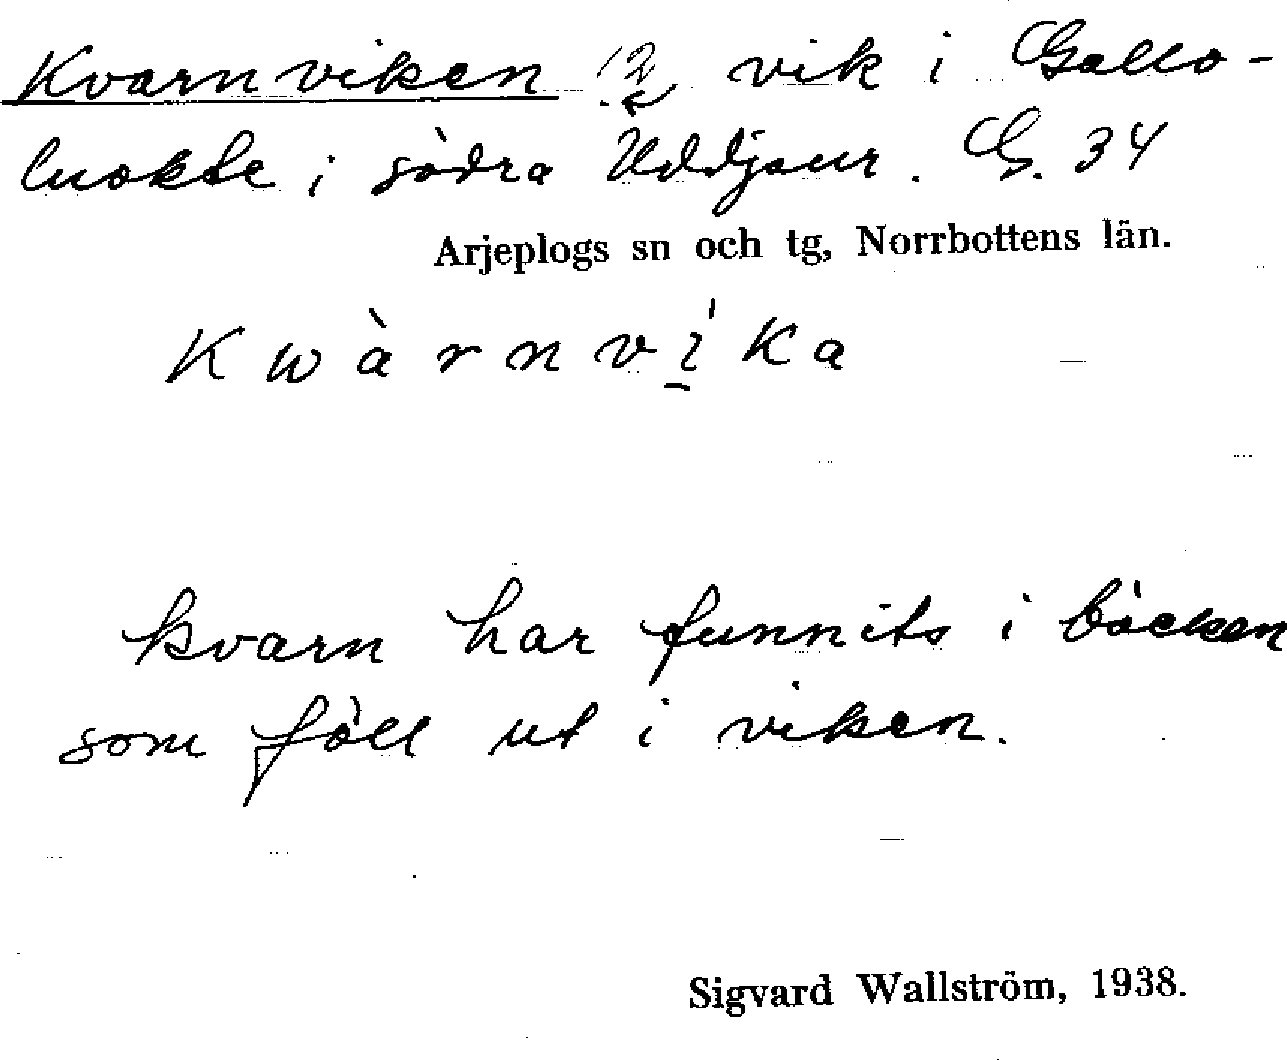 Kvarnviken 12 vik i Gallo-
luokte i södra Uddjaur. G. 34
Arjeplogs sn och tg, Norrbottens län.
K w à r n v i̱ ́ k a
kvarn har funnits i bäcken
som föll ut i viken.
Sigvard Wallström, 1938.